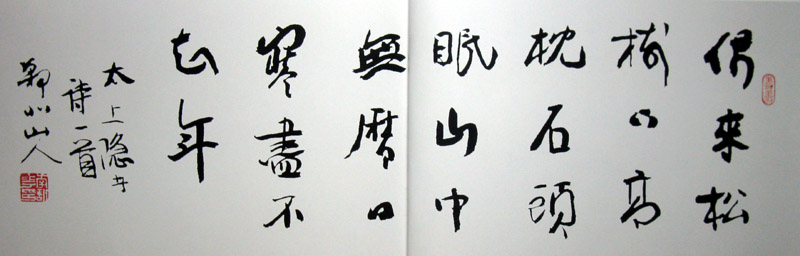 偶来松
树下高
枕石頭
眠山中
無曆日
寒盡不
知年
太上隐者
诗一首
山人